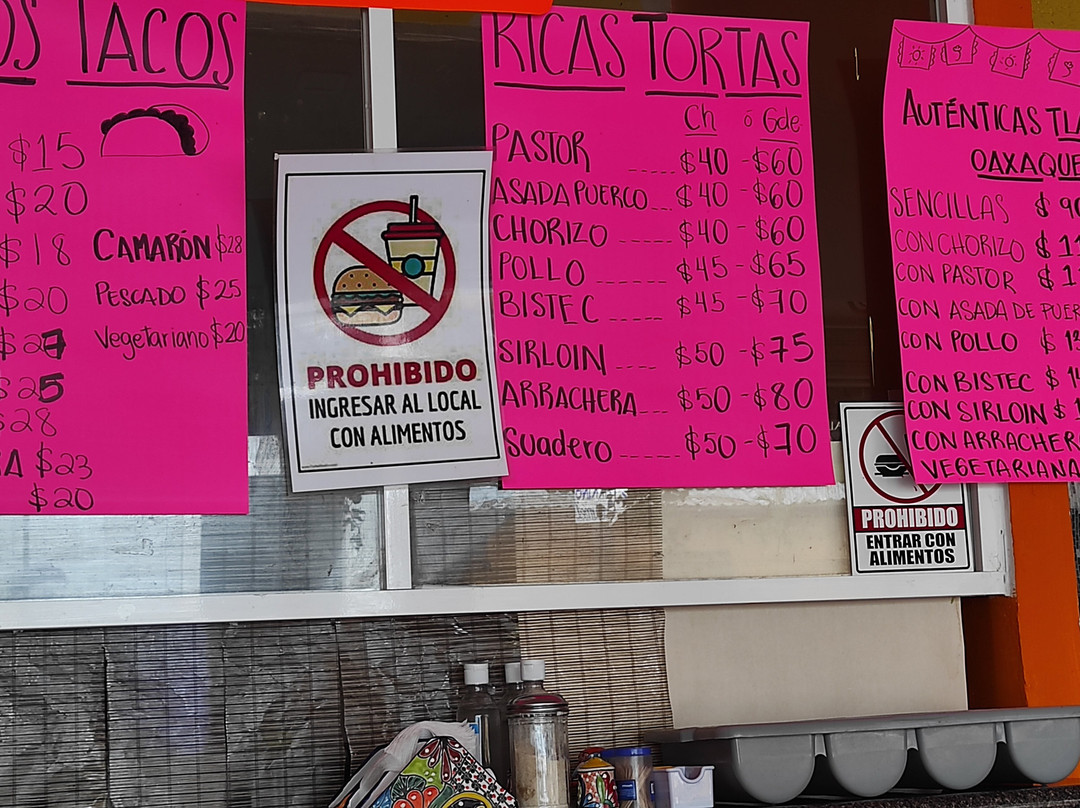 OS TACOS
$15
$20
$18
$20
$27
$25
$28
A $23
$20
CAMARÓN $28
PESCADO $25
Vegetariano $20
PROHIBIDO
INGRESAR AL LOCAL
CON ALIMENTOS
RICAS TORTAS
Ch ó Gde
PASTOR ..... $40 - $60
ASADA PUERCO ... $40 - $60
CHORIZO ..... $40 - $60
POLLO ...... $45 - $65
BISTEC ..... $45 - $70
SIRLOIN .... $50 - $75
ARRACHERA ... $50 - $80
Suadero .... $50 - $70
AUTÉNTICAS TLA
OAXAQUE
SENCILLAS $90
CON CHORIZO $1
CON PASTOR $1
CON ASADA DE PUER
CON POLLO $1
CON BISTEC $1
CON SIRLOIN $1
CON ARRACHER
VEGETARIANA
PROHIBIDO
ENTRAR CON
ALIMENTOS